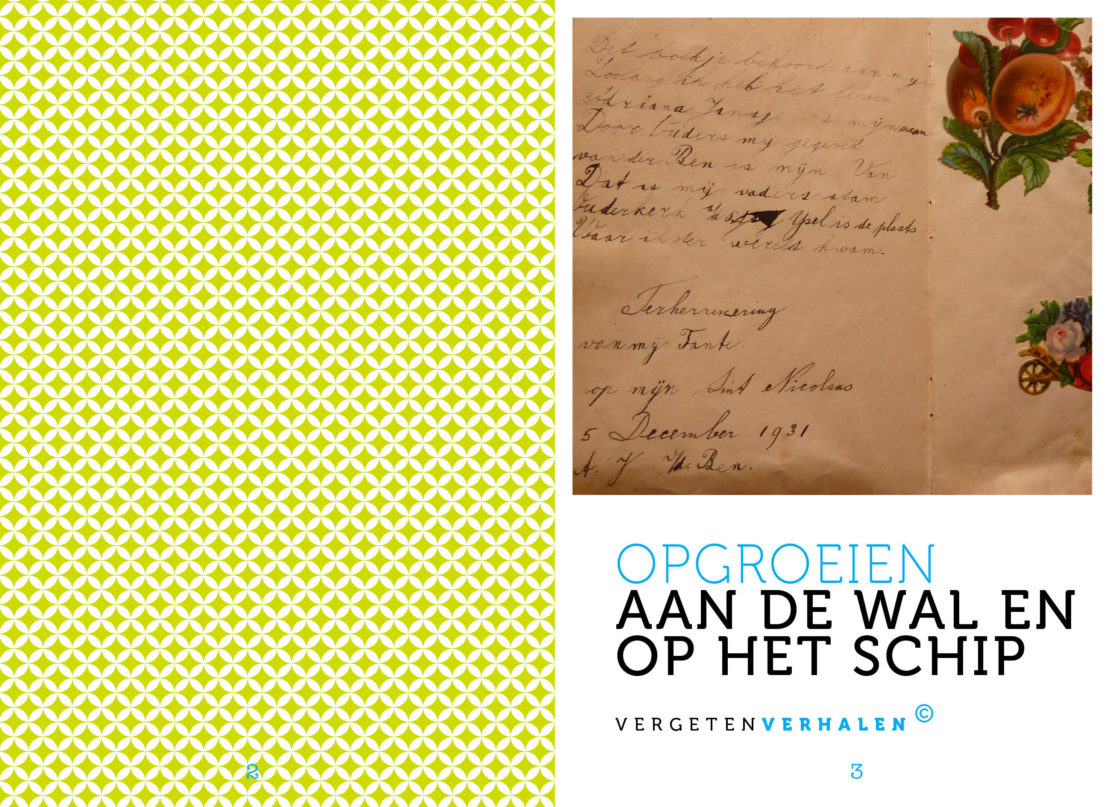 Dit boekje behoord aan my
Zoolang ik heb het leven
Adriana Jansje is mijn naam
Door ouders mij gegeven
van der Ben is mijn Van
Dat is mijn vaders stam
Ouderkerk a/d Yssel is de plaats
Waar ik ter wereld kwam.
Ter herinnering
van mij Tante.
op mijn Sint Nicolaas
5 December 1931
A. J. v.d. Ben.
OPGROEIEN
AAN DE WAL EN
OP HET SCHIP
VERGETENVERHALEN ©
2
3